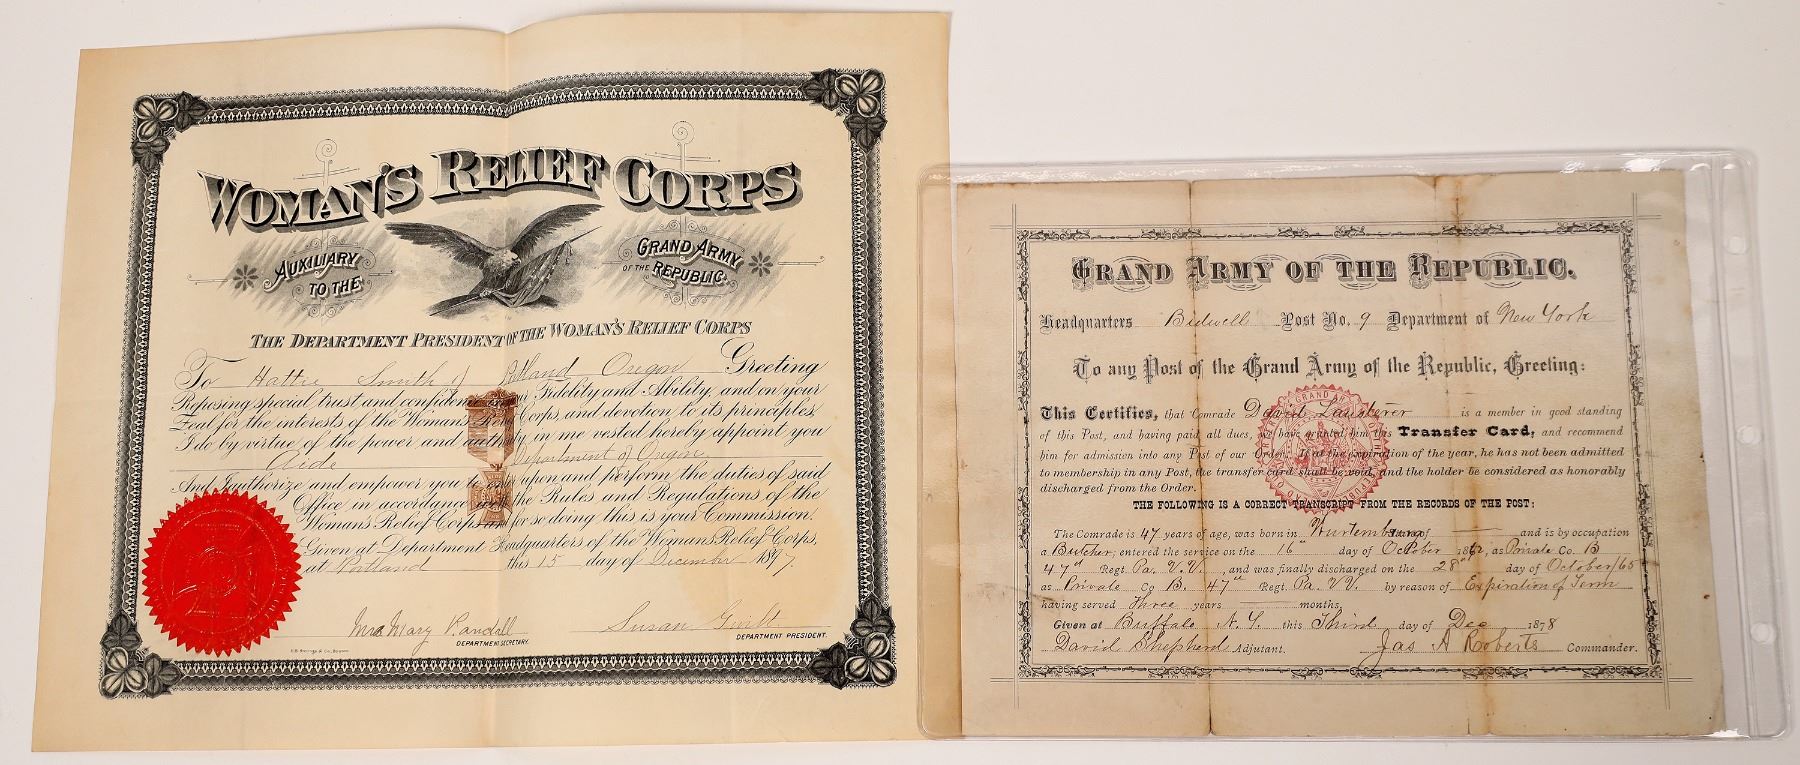 WOMAN'S RELIEF CORPS
AUXILIARY
TO THE
GRAND ARMY
OF THE REPUBLIC.
THE DEPARTMENT PRESIDENT OF THE WOMAN'S RELIEF CORPS
To Hattie Smith of Portland Oregon Greeting
Reposing special trust and confidence in your Fidelity and Ability, and on your
Zeal for the interests of the Woman's Relief Corps, and devotion to its principles,
I do by virtue of the power and authority in me vested hereby appoint you
Aide Department of Oregon.
And I authorize and empower you to enter upon and perform the duties of said
Office in accordance with the Rules and Regulations of the
Woman's Relief Corps and for so doing this is your Commission.
Given at Department Headquarters of the Woman's Relief Corps,
at Portland this 15 day of December 1897
Mrs Mary Randall Susan
DEPARTMENT SECRETARY. DEPARTMENT PRESIDENT.
GRAND ARMY OF THE REPUBLIC.
Headquarters Bidwell Post No. 9 Department of New York
To any Post of the Grand Army of the Republic, Greeting:
This Certifies, that Comrade David Lausterer is a member in good standing
of this Post, and having paid all dues, we have granted him this Transfer Card, and recommend
him for admission into any Post of our Order. If at the expiration of the year, he has not been admitted
to membership in any Post, the transfer card shall be void, and the holder be considered as honorably
discharged from the Order.
THE FOLLOWING IS A CORRECT TRANSCRIPT FROM THE RECORDS OF THE POST:
The Comrade is 47 years of age, was born in Wurtemburg and is by occupation
a Butcher; entered the service on the 16th day of October 1862, as Private Co. B
47th Regt. Pa. V.V. , and was finally discharged on the 28th day of October/65
as Private Co B. 47th Regt. Pa. V.V. by reason of Expiration of Term
having served Three years months,
Given at Buffalo N. Y. this Third day of Dec 1878
David Shepherd Adjutant. Jas A Roberts Commander.